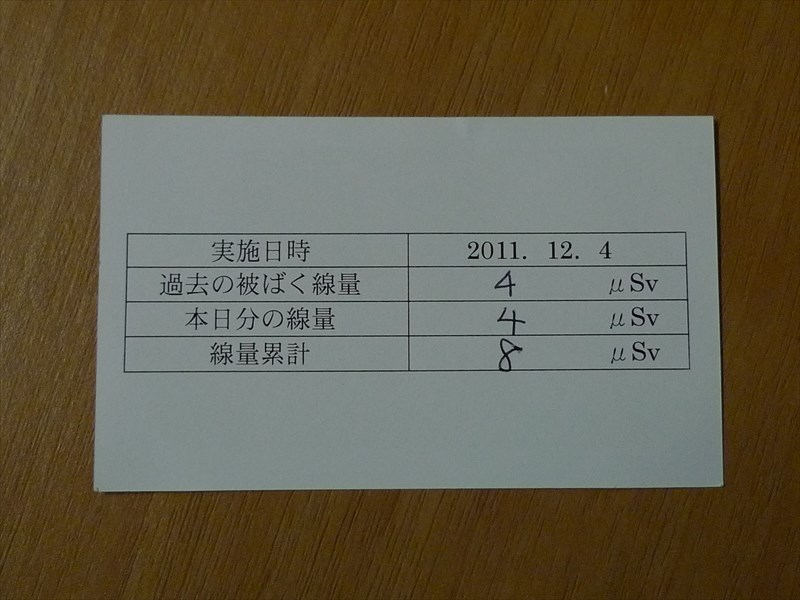 実施日時 2011. 12. 4
過去の被ばく線量 4 μSv
本日分の線量 4 μSv
線量累計 8 μSv